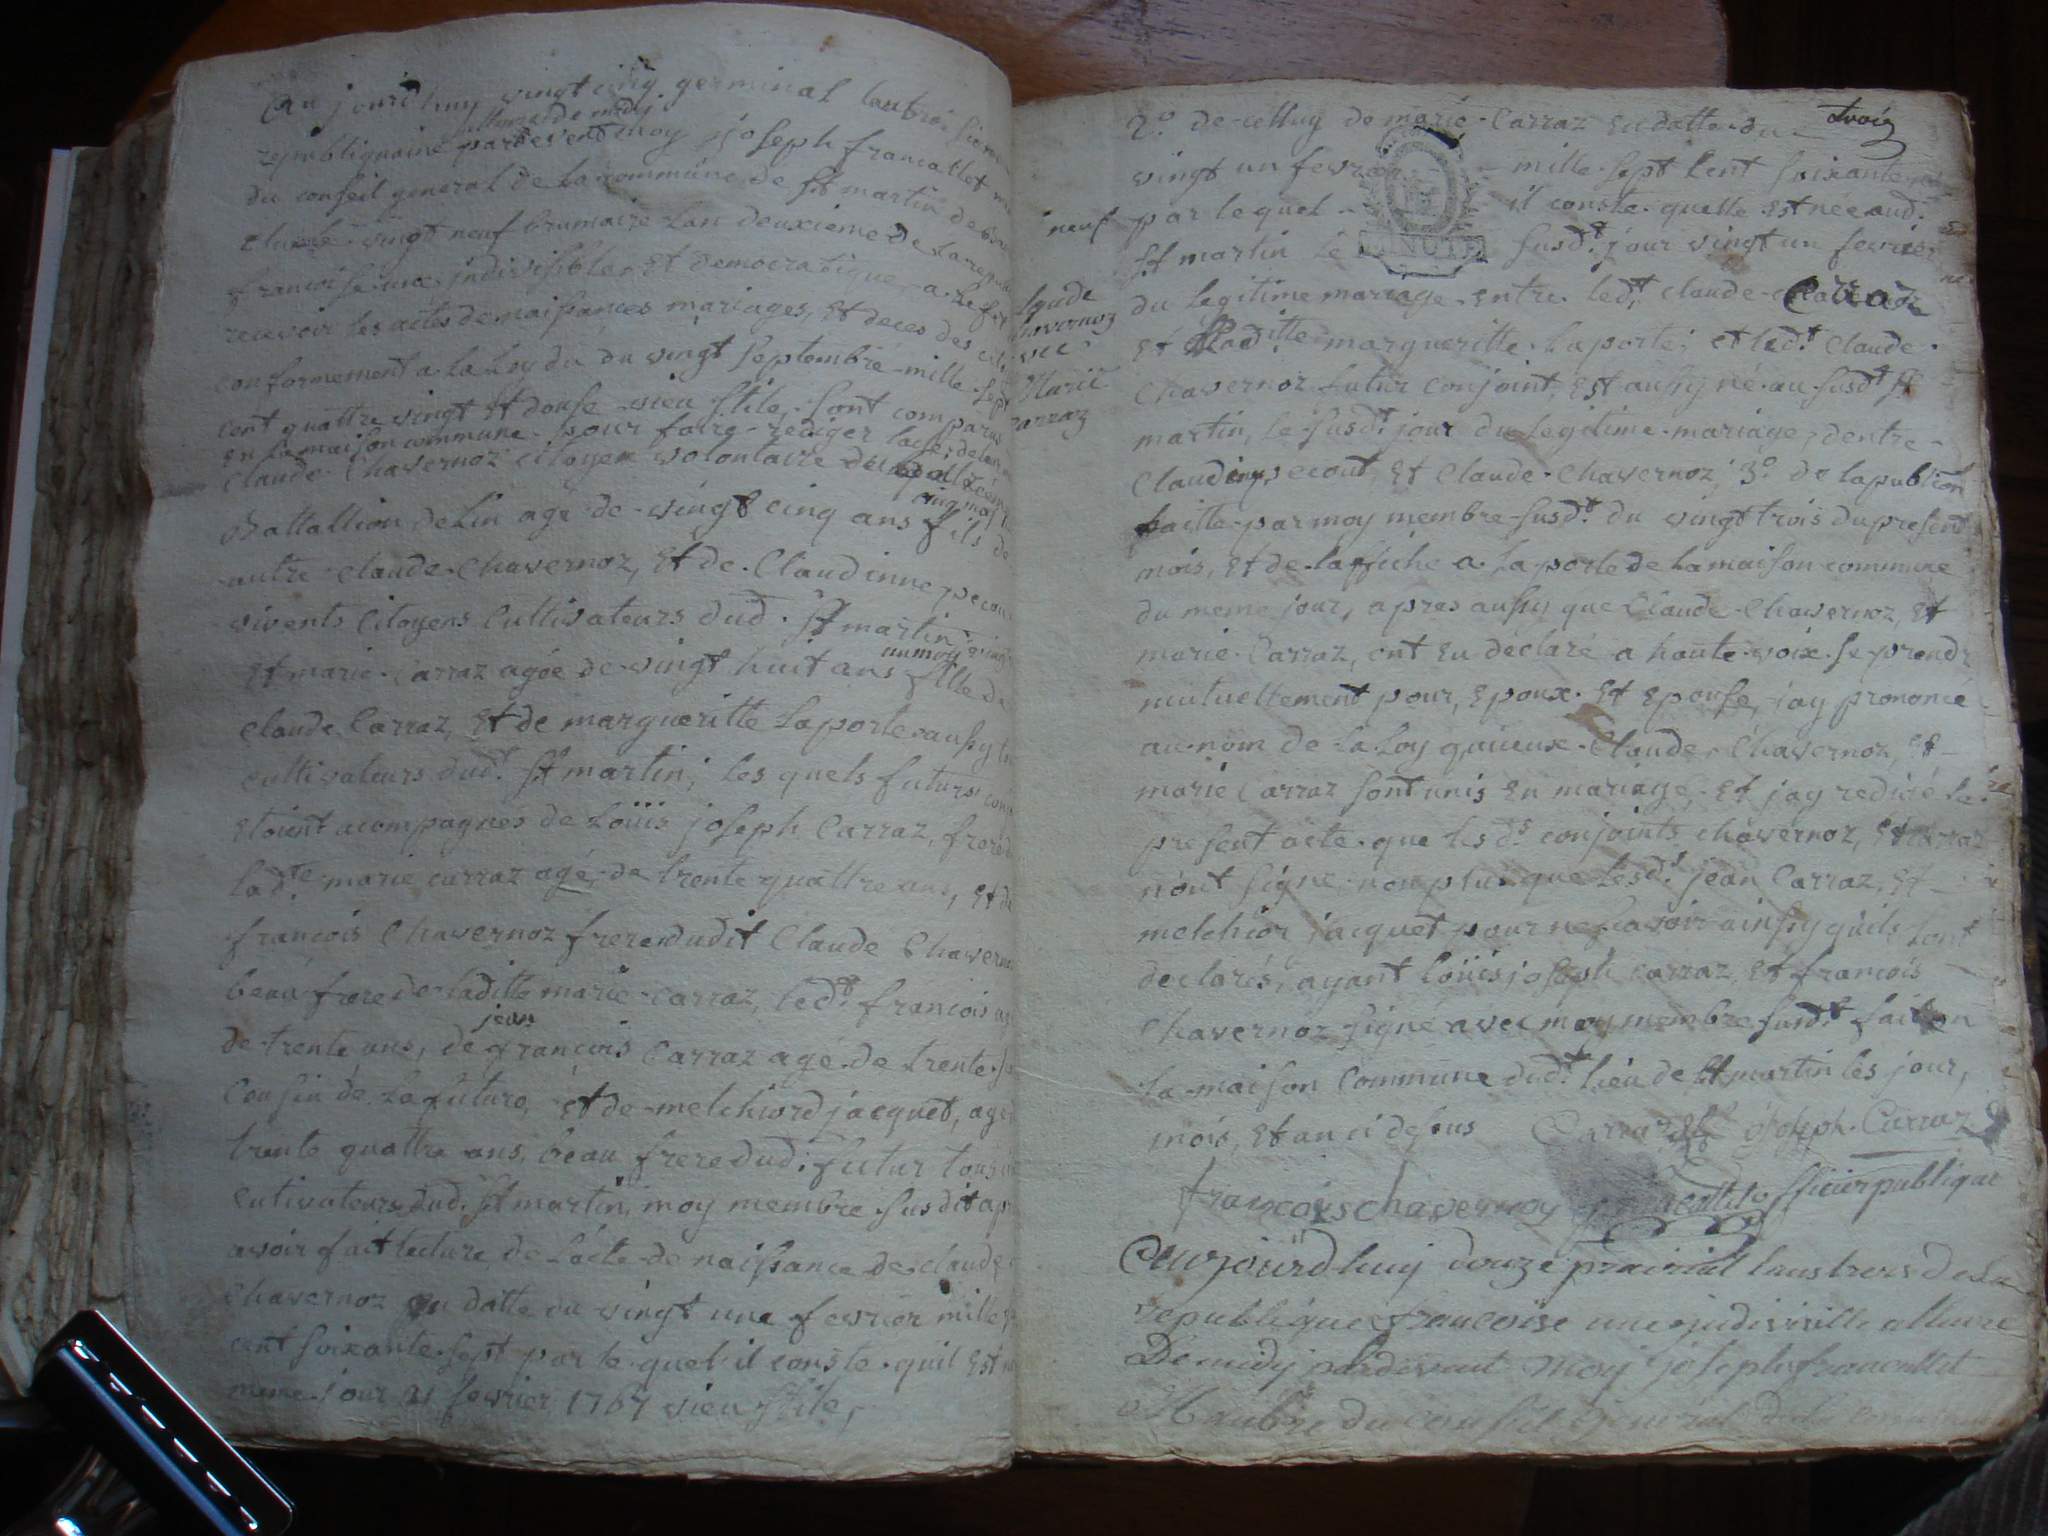 Aujourdhuy vingt cinq germinal lan trois
a lheure de midy
republiquaine pardevent moy joseph francallet
du conseil general de la commune de St martin
vingt neuf brumaire lan deuxieme de la
francoise une indivisible, et democratique, a leffet
recevoir les actes de naissances mariages, et deces des
conformement a la Loy du du vingt septembre mille sept
cent quattre vingt et douse vieu stile, sont comparus
en la maison commune pour faire rediger
Claude Chavernoz citoyen volontaire
cinq moi
Battallion de Lin agé de vingt cinq ans fils de
autre claude Chavernoz, et de Claudinne pecout
vivents Citoyens Cultivateurs dud. St martin
un moy
et marie Carraz agée de vingt huit ans fille de
Claude Carraz, et de margueritte Laporte aussy
cultivateurs dud.t St martin; les quels futurs
etoient acompagnés de Loüis joseph Carraz, frere
lad.te marie carraz agé de trente quattre ans, et de
francois Chavernoz frere dudit Claude Chavernoz
beau frere de laditte marie carraz, led.t francois
jean
de trente ans, de francois Carraz agé de trente
Cousin de la future, et de melchiord jacquet, agé
trente quattre ans, beau frere dud. futur tous
cutivateurs dud. St martin, moy membre susdit
avoir fait lecture de lacte de naissance de claude
Chavernoz en datte du vingt une fevrier mille
cent soixante sept par le quel il conste quil est
meme jour 21 fevrier 1767 vieu stile,
trois
2.o de celluy de marie Carraz en datte du
vingt un fevrier mille sept Cent soixante
neuf par lequel il conste quelle est née aud.
MINUTE
St martin le susd.t jour vingt un fevrier
du legitime mariage entre led.t claude Carraz
Claude
Chavernoz
avec
Marie
Carraz
et laditte margueritte Laporte; et led.t Claude
Chavernoz futur conjoint, est aussy né au susd.t St
martin, le susd.t jour du legitime mariage, dentre
Claudine pecout, et Claude Chavernoz, 3.o de la publion
faitte par moy membre susd.t du vingt trois du present
mois, et de laffiche a la porte de la maison commune
du meme jour, apres aussy que Claude Chavernoz, et
marie Carraz, ont eu déclaré a haute voix se prendre
mutuellement pour, epoux et epouse, jay prononcé
au nom de la Loy quieux Claude Chavernoz, et
marie Carraz sont unis en mariage, et jay redigé le
present acte que les d.s conjoints chavernoz, et carraz
nont signe, non plus que lesd.s jean Carraz, et
melchior jacquet pour ne scavoir ainsy quils lont
declarés, ayant loüis joseph carraz, et francois
Chavernoz signé avec moy membre susd.t fait en
la maison Commune dud.t lieu de St martin les jour,
mois, et an ci desus joseph Carraz
francois chavernoz officier publique
Aujourdhuy douze prairial lans trois de la
republique francoise une indivisille a lheure
De midy pardevant moy joseph francallet
Membre du conseil general de la commune